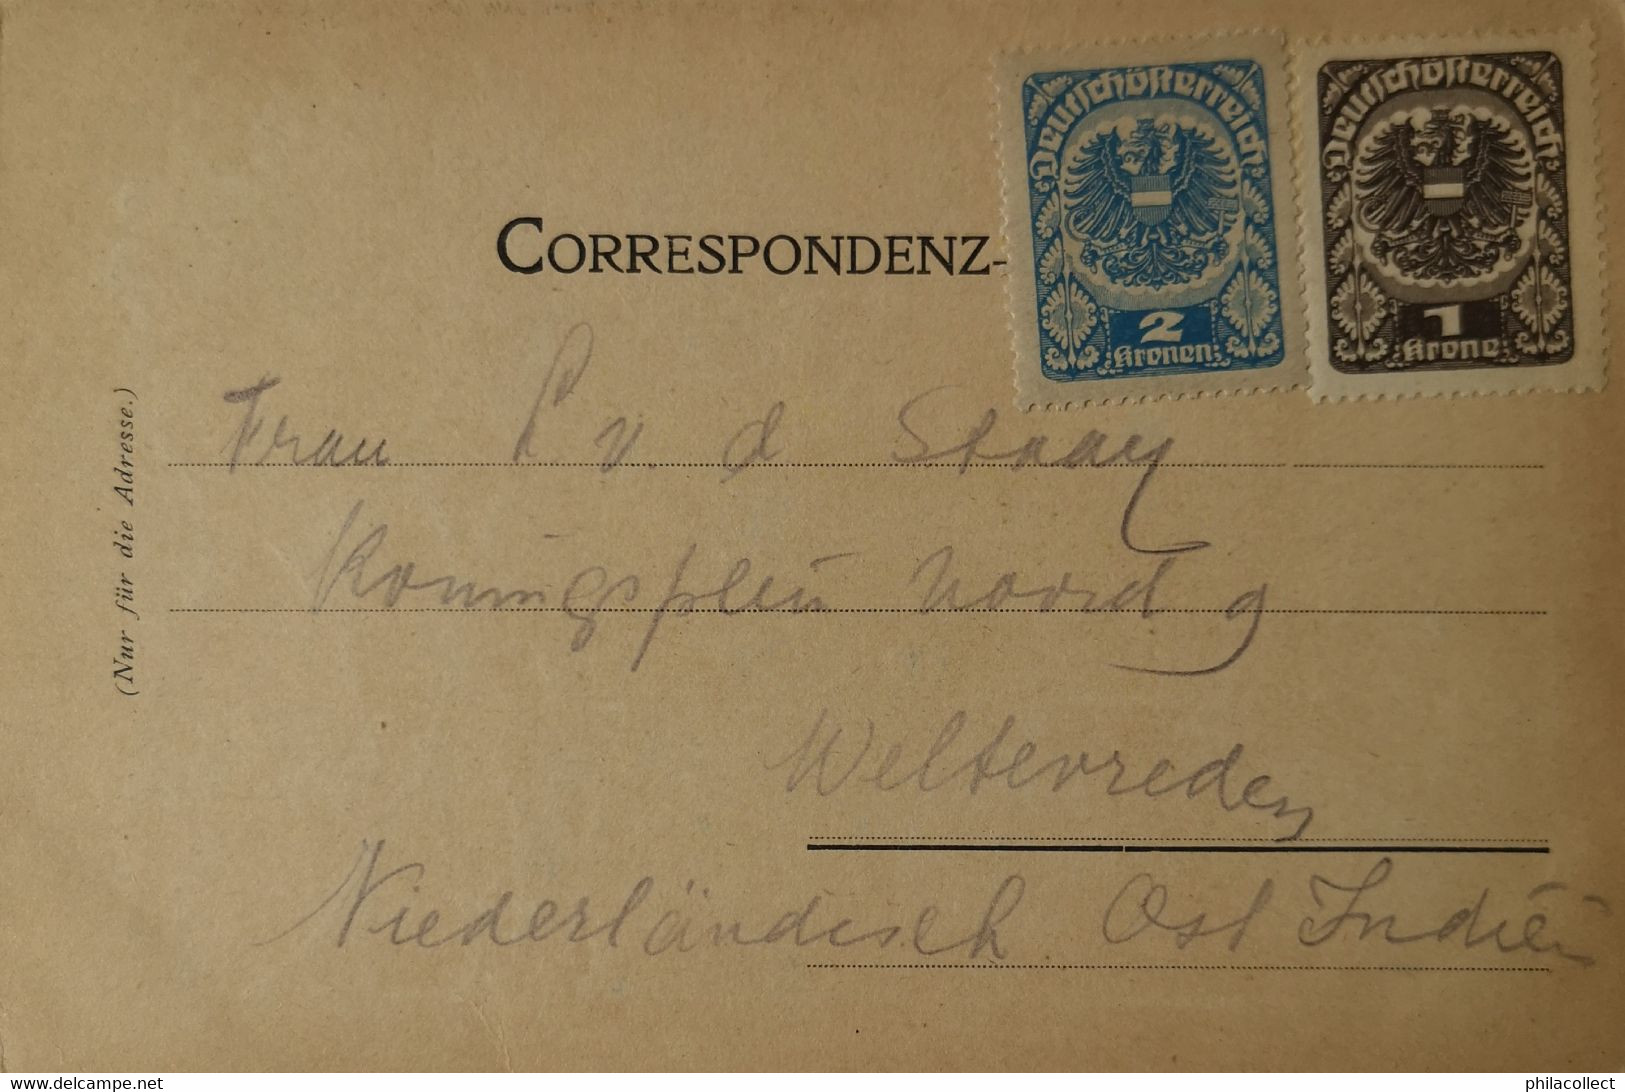 Deutschösterreich
2
Kronen
Deutschösterreich
1
Krone
CORRESPONDENZ-
(Nur für die Adresse.)
Frau L v. d Staay
Koningsplein Noord 9
Weltevreden
Niederländisch Ost Indien
delcampe.net
philacollect